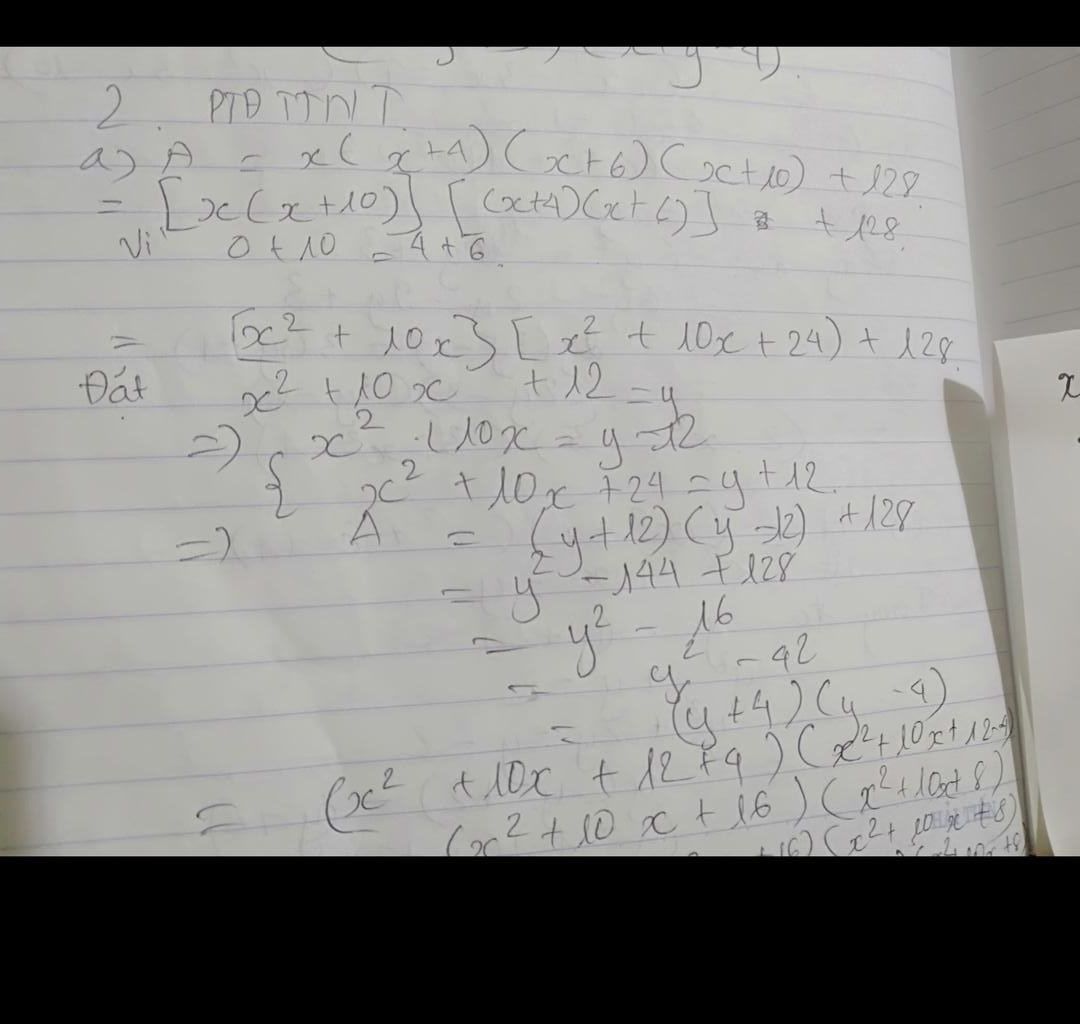 2. PTĐTTNT
a) A = x(x+4)(x+6)(x+10) + 128.
= [x(x+10)] [(x+4)(x+6)] + 128.
Vì 0 + 10 = 4 + 6.
= [x² + 10x} [x² + 10x + 24) + 128.
Đặt x² + 10x + 12 = y
=> { x² + 10x = y - 12
x² + 10x + 24 = y + 12.
=> A = (y + 12)(y - 12) + 128
= y² - 144 + 128
= y² - 16
= y² - 4²
= (y + 4)(y - 4)
= (x² + 10x + 12 + 4)(x² + 10x + 12 - 4)
(x² + 10x + 16)(x² + 10x + 8)
+16)(x² + 10x + 8)